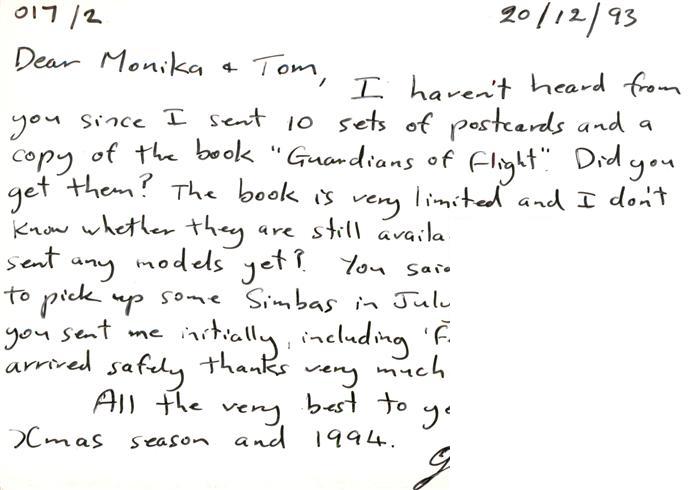 017/2 20/12/93
Dear Monika & Tom,
I haven't heard from
you since I sent 10 sets of postcards and a
copy of the book "Guardians of Flight". Did you
get them? The book is very limited and I don't
know whether they are still
sent any models yet? You
to pick up some Simbas in
you sent me initially, including
arrived safely thanks very much
All the very best to
Xmas season and 1994.